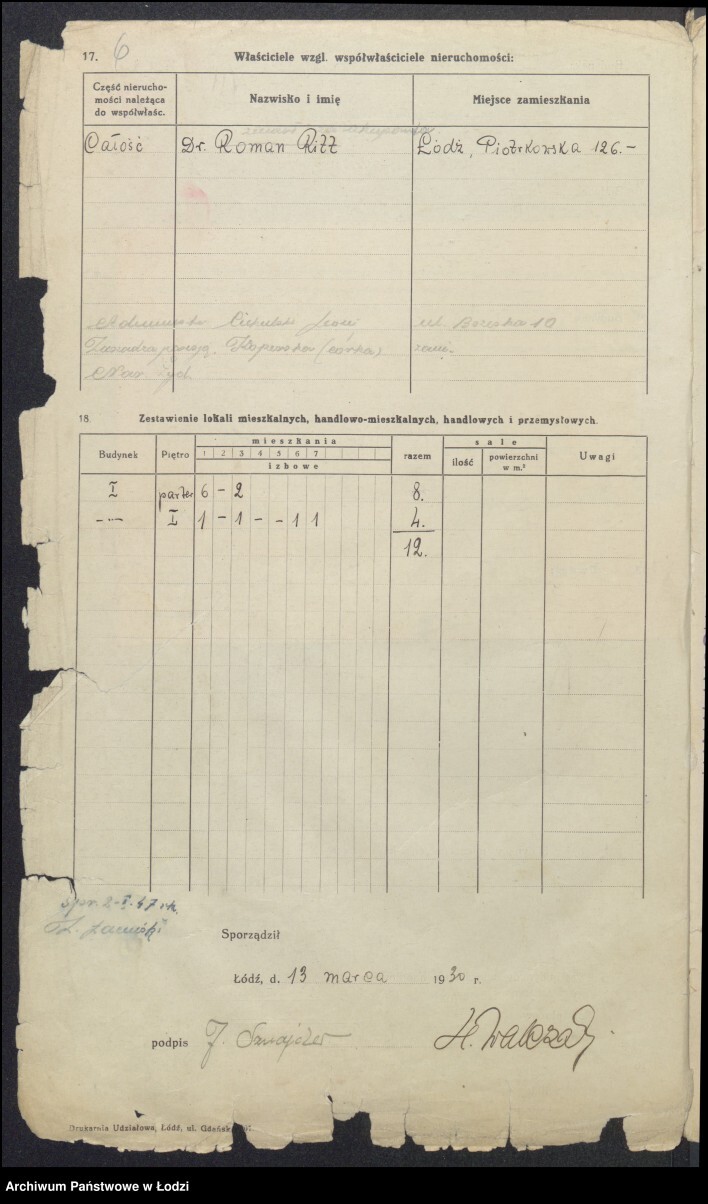 17. 6 Właściciele wzgl. współwłaściciele nieruchomości:
Część nierucho-
mości należąca
do współwłaśc.
Nazwisko i imię
Miejsce zamieszkania
Całość Dr. Roman Ritt Łódź, Piotrkowska 126.-
ul. 10
(córka)
18. Zestawienie lokali mieszkalnych, handlowo-mieszkalnych, handlowych i przemysłowych.
Budynek Piętro mieszkania razem sale Uwagi
1 2 3 4 5 6 7 ilość powierzchni
w m.²
izbowe
I parter 6 - 2 8.
-"- I 1 - 1 - - 1 1 4.
12.
spr. 2-I-47 rk.
Sporządził
Łódź, d. 13 marca 1930 r.
podpis J. Sznajder H. Walczak
Drukarnia Udziałowa, Łódź, ul. Gdańsk
Archiwum Państwowe w Łodzi